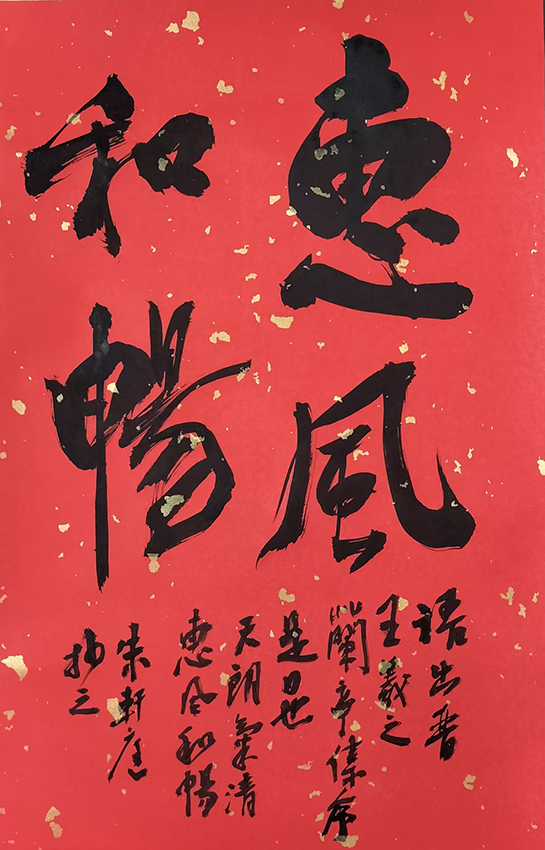 惠風
和暢
語出晉
王羲之
蘭亭集序
是日也
天朗氣清
惠风和暢
朱軒庭
抄之